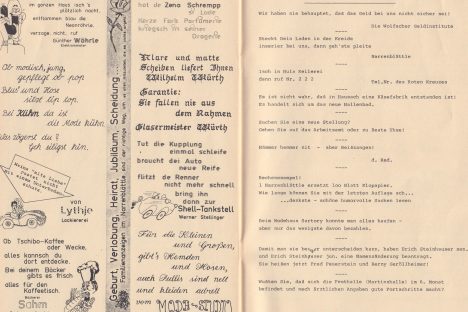 im ganzen Haus ist's
plötzlich nacht,
entflammen blau die
Neonröhre,
vergiß nicht, auf
Günther Wöhrle
Ob modisch, jung,
gepflegt od pop
Blus' und Hose
sitzt tip top.
Bei Kühn da ist
die Mode kühn
Was zögerst du?
Geh eiligst hin.
Meine "alte Liebe"
Lythje
Lackiererei
Ob Tschibo-Kaffee
oder Wecke,
alles kannsch du
dort entdecke.
Bei deinem Bäcker
gibts es frisch
alles für den
Kaffeetisch.
Bäckerei
Sohm
Geburt, Verlobung, Heirat, Jubiläum, Scheidung...
hat de Zeno Schrempp
si Lade
Herze Farb Parfümerie
kriegsch in seiner
Drogerie
Klare und matte
Scheiben liefert Ihnen
Wilhelm Würth
Garantie:
Sie fallen nie aus
dem Rahmen
Glasermeister Würth
Tut die Kupplung
einmal schleife
braucht dei Auto
neue Reife
fützt de Renner
nicht mehr schnell
bring ihn
dann zur
Shell-Tankstell
Werner Stellinger
Für die Kleinen
und Großen,
gibt's Hemden
und Hosen,
auch Pullis sind nett
und kleiden adrett
vom MODE-STUDIO
Wir haben nie behauptet, daß das Geld bei uns nicht sicher sei!
Die Wolfacher Geldinstitute
Steckt Dein Laden in der Kreide
inserier bei uns, dann geh'ste pleite
Narrenblättle
Isch im Huis Keilerei
dann ruf Nr. 2 2 2
Tel.Nr. des Roten Kreuzes
Es ist nicht wahr, daß in Hausach eine Käsefabrik entstanden ist!
Es handelt sich an das neue Hallenbad.
Suchen Sie eine neue Stellung?
Gehen Sie auf das Arbeitsamt oder zu Beate Uhse!
d. Red.
Rechenexempel:
1 Narrenblättle ersetzt 100 Blatt Klopapier.
Wie lange können Sie mit der letzten Auflage sch...
...denkste - schöne humorvolle Sachen lesen
Beim Modehaus Sartory konnte man alles kaufen -
aber nur das wenigste davon bezahlen.
Damit man sie besser unterscheiden kann, haben Erich Steinhauser sen.
und Erich Steinhauser jun. eine Namensänderung beantragt.
Sie heißen jetzt Fred Feuerstein und Barny Geröllheimer!
Wußten Sie, daß sich die Festhalle (Martinihalle) im 6. Monat
befindet und nach ärztlichen Angaben gute Fortschritte macht?